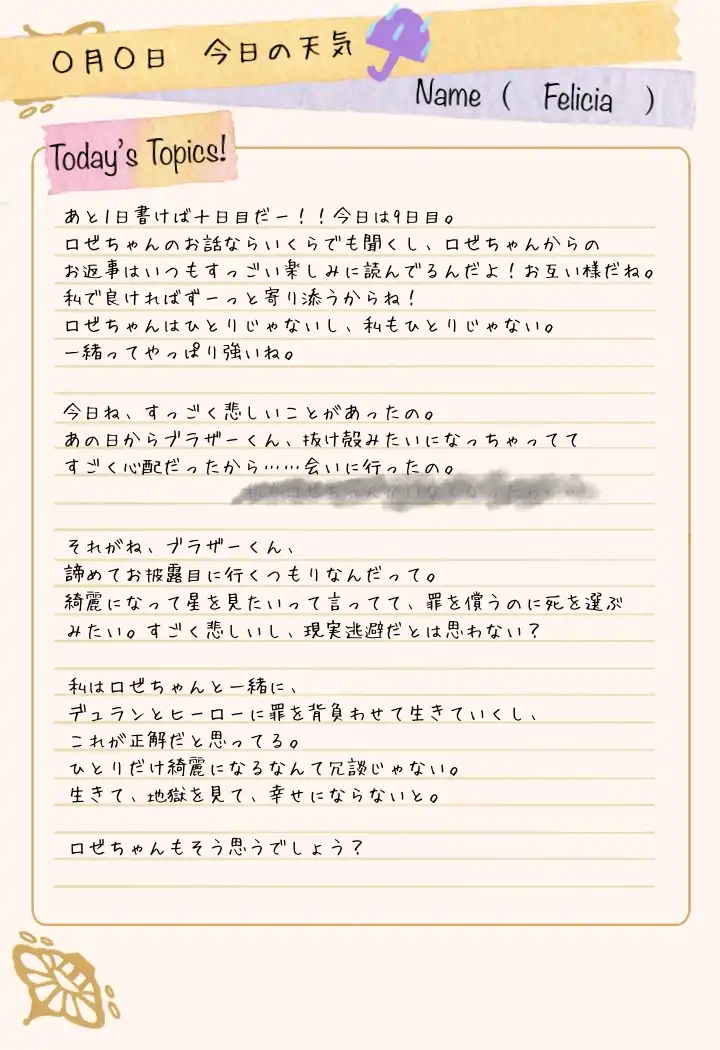 〇月〇日 今日の天気
Name ( Felicia )
Today's Topics!
あと1日書けば十日目だー！！今日は9日目。
ロゼちゃんのお話ならいくらでも聞くし、ロゼちゃんからの
お返事はいつもすっごい楽しみに読んでるんだよ！お互い様だね。
私で良ければずーっと寄り添うからね！
ロゼちゃんはひとりじゃないし、私もひとりじゃない。
一緒ってやっぱり強いね。
今日ね、すっごく悲しいことがあったの。
あの日からブラザーくん、抜け殻みたいになっちゃってて
すごく心配だったから……会いに行ったの。
ロゼちゃんがいなくなったら
それがね、ブラザーくん、
諦めてお披露目に行くつもりなんだって。
綺麗になって星を見たいって言ってて、罪を償うのに死を選ぶ
みたい。すごく悲しいし、現実逃避だとは思わない？
私はロゼちゃんと一緒に、
デュランとヒーローに罪を背負わせて生きていくし、
これが正解だと思ってる。
ひとりだけ綺麗になるなんて冗談じゃない。
生きて、地獄を見て、幸せにならないと。
ロゼちゃんもそう思うでしょう？